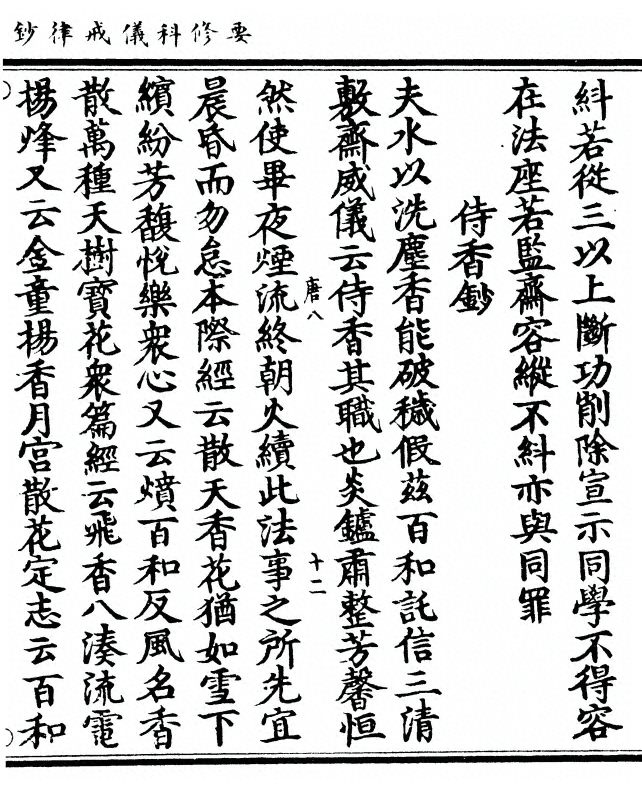 要修科儀戒律鈔
糾若從三以上斷功削除宣示同學不得容
在法座若監齋容縱不糾亦與同罪
侍香鈔
夫水以洗塵香能破穢假茲百和託信三清
敷齋威儀云侍香其職也炎鑪肅整芳馨恒
唐八
十二
然使畢夜煙流終朝火續此法事之所先宜
晨昏而勿怠本際經云散天香花猶如雪下
繽紛芳馥悅樂衆心又云燌百和反風名香
散萬種天樹寶花衆篇經云飛香八湊流電
揚烽又云金童揚香月宮散花定志云百和